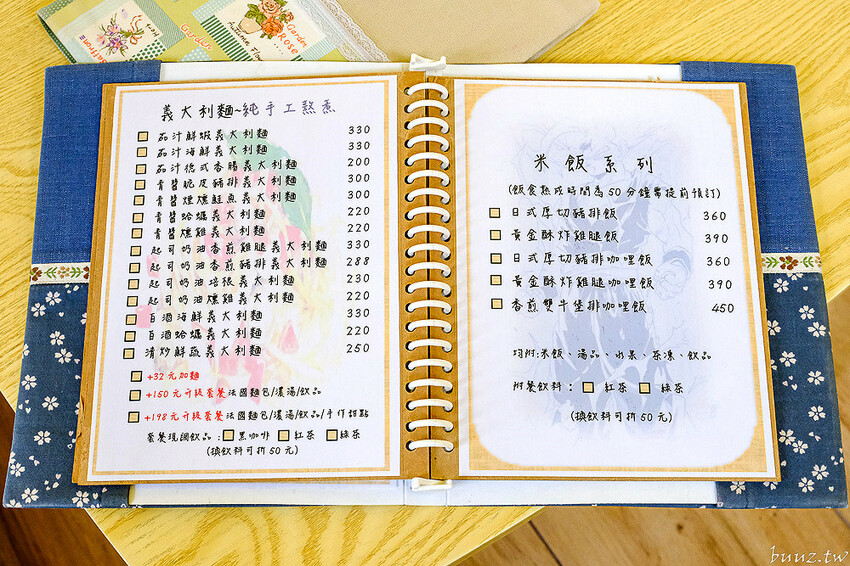 Garden
Autumn Flower
Garden
ROSE
義大利麵~純手工熬煮
茄汁鮮蝦義大利麵 330
茄汁海鮮義大利麵 330
茄汁德式香腸義大利麵 200
青醬脆皮豬排義大利麵 300
青醬燻燻鮭魚義大利麵 300
青醬蛤蠣義大利麵 220
青醬燻雞義大利麵 220
起司奶油香煎雞腿義大利麵 330
起司奶油香煎豬排義大利麵 288
起司奶油培根義大利麵 230
起司奶油燻雞義大利麵 220
白酒海鮮義大利麵 330
白酒蛤蠣義大利麵 220
清炒鮮蔬義大利麵 250
+32元加麵
+150元升級套餐法國麵包/濃湯/飲品
+198元升級套餐法國麵包/濃湯/飲品/手作甜點
套餐現調飲品：黑咖啡 紅茶 綠茶
(換飲料可折50元)
米飯系列
(飯食熟成時間為50分鐘需提前預訂)
日式厚切豬排飯 360
黃金酥炸雞腿飯 390
日式厚切豬排咖哩飯 360
黃金酥炸雞腿咖哩飯 390
香煎雙牛堡排咖哩飯 450
均附:米飯、湯品、水果、茶凍、飲品
附餐飲料： 紅茶 綠茶
(換飲料可折50元)
buuz.tw